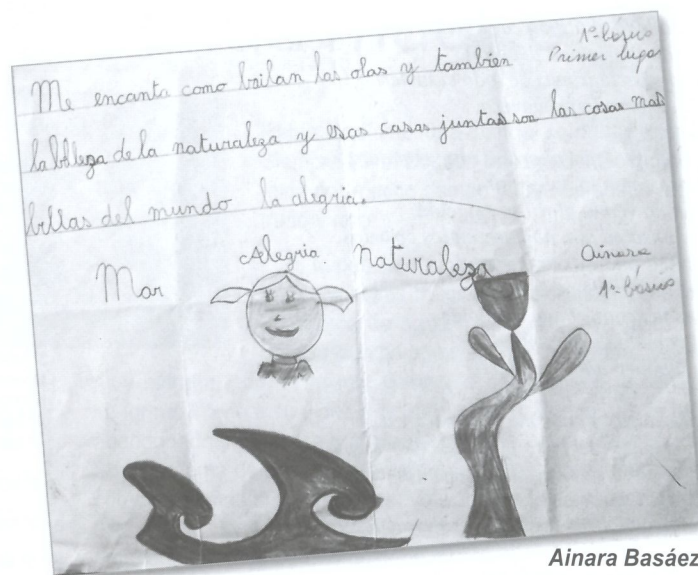 1º básico
Primer lugar
Me encanta como bailan las olas y tambien
la belleza de la naturaleza y esas casas juntas son las cosas mas
bellas del mundo la alegria.
Mar
Alegria.
naturaleza
Ainara
1º básico
Ainara Basáez